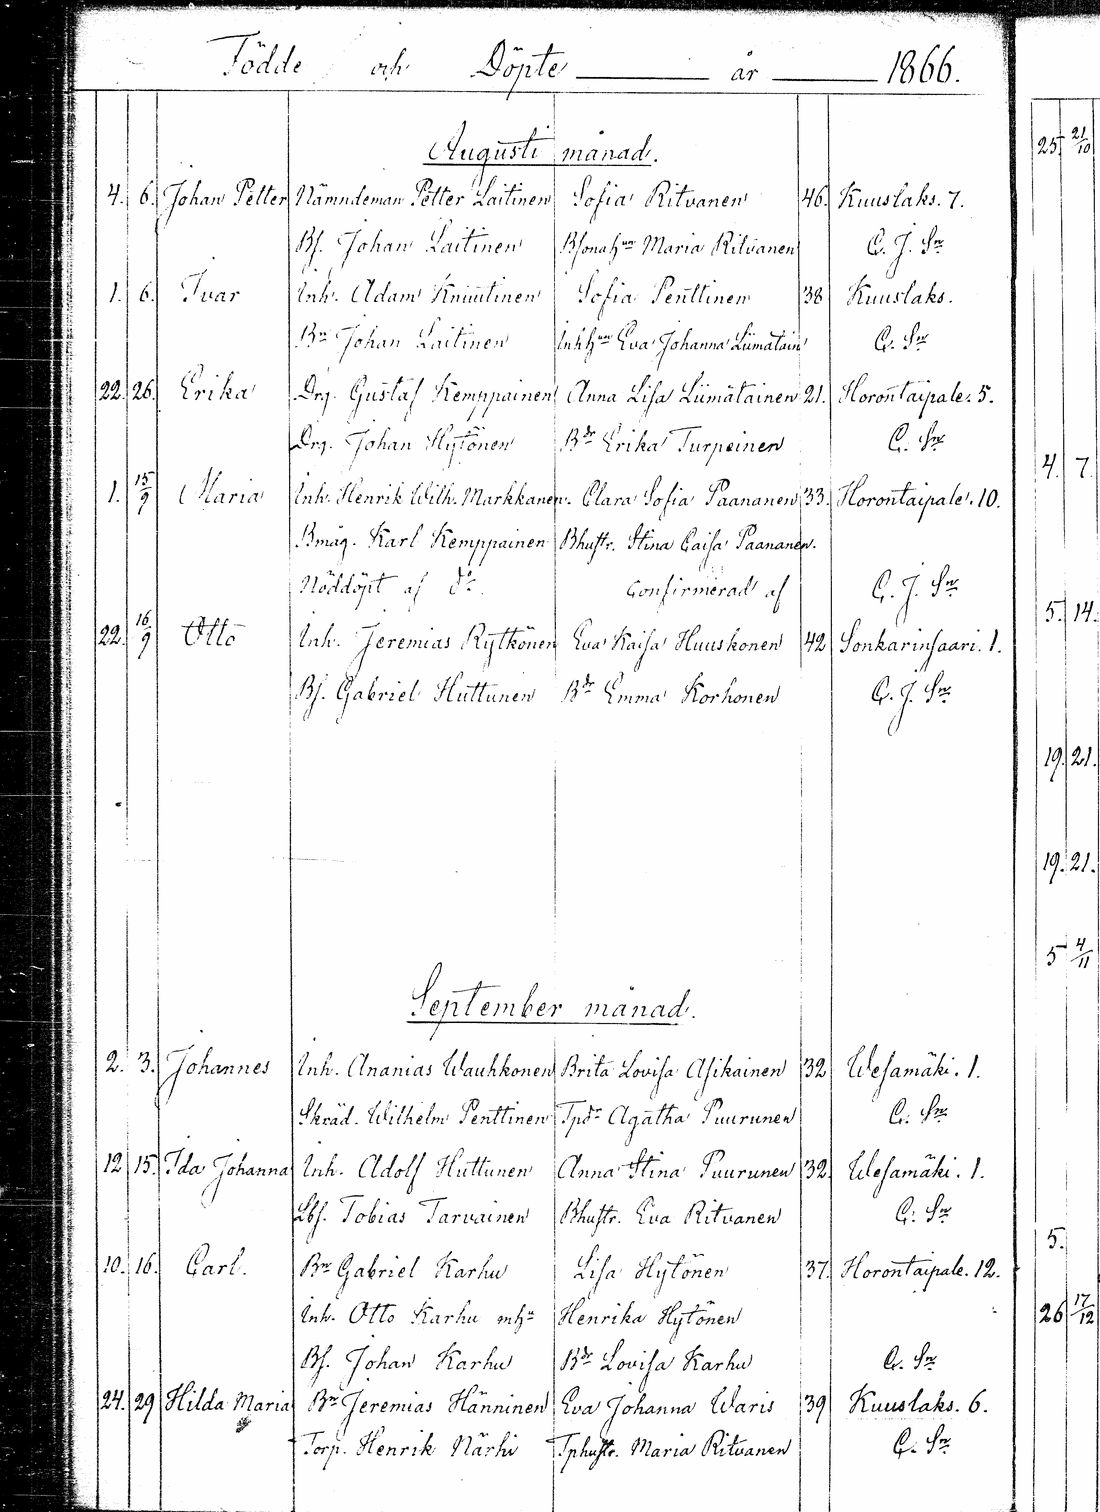 Födde och Döpte år 1866.
Augusti månad.
4. 6. Johan Petter Nämndeman Petter Laitinen Sofia Ritvanen 46. Kuuslaks. 7.
Bs. Johan Laitinen Maria Ritvanen C. J. Sn
1. 6. Ivar Inh. Adam Knuutinen Sofia Penttinen 38 Kuuslaks.
Bn Johan Laitinen Eva Johanna Liimatain C. Sn
22. 26. Erika Drg. Gustaf Kemppainen Anna Lisa Liimatainen 21. Horontaipale. 5.
Drg. Johan Hytönen Bdr Erika Turpeinen C. Sn
1. 15/9 Maria Inh. Henrik Wilh. Markkanen. Clara Sofia Paananen 33. Horontaipale. 10.
Bmåg. Karl Kemppainen Bhustr. Stina Caisa Paananen.
Nöddöpt af do. Confirmerad af C. J. Sn
22. 16/9 Otto Inh. Jeremias Rytkönen Eva Kaisa Huuskonen 42 Sonkarinsaari. 1.
Bs. Gabriel Huttunen Bdr Emma Korhonen C. J. Sn
September månad.
2. 3. Johannes Inh. Ananias Wauhkonen Brita Lovisa Asikainen 32 Wesamäki. 1.
Skräd. Wilhelm Penttinen Tpdr Agatha Puurunen C. Sn
12 15. Ida Johanna Inh. Adolf Huttunen Anna Stina Puurunen 32. Wesamäki. 1.
Lbs. Tobias Tarvainen Bhustr. Eva Ritvanen C. Sn
10. 16. Carl. Bn Gabriel Karhu Lisa Hytönen 37. Horontaipale. 12.
Inh. Otto Karhu mhu Henrika Hytönen
Bs. Johan Karhu Bdr Lovisa Karhu C. Sn
24. 29 Hilda Maria Bn Jeremias Hänninen Eva Johanna Waris 39 Kuuslaks. 6.
Torp. Henrik Närhi Tphustr. Maria Ritvanen C. Sn
25. 21/10
4. 7.
5. 14.
19. 21.
19. 21.
5 4/11
5.
26 17/12